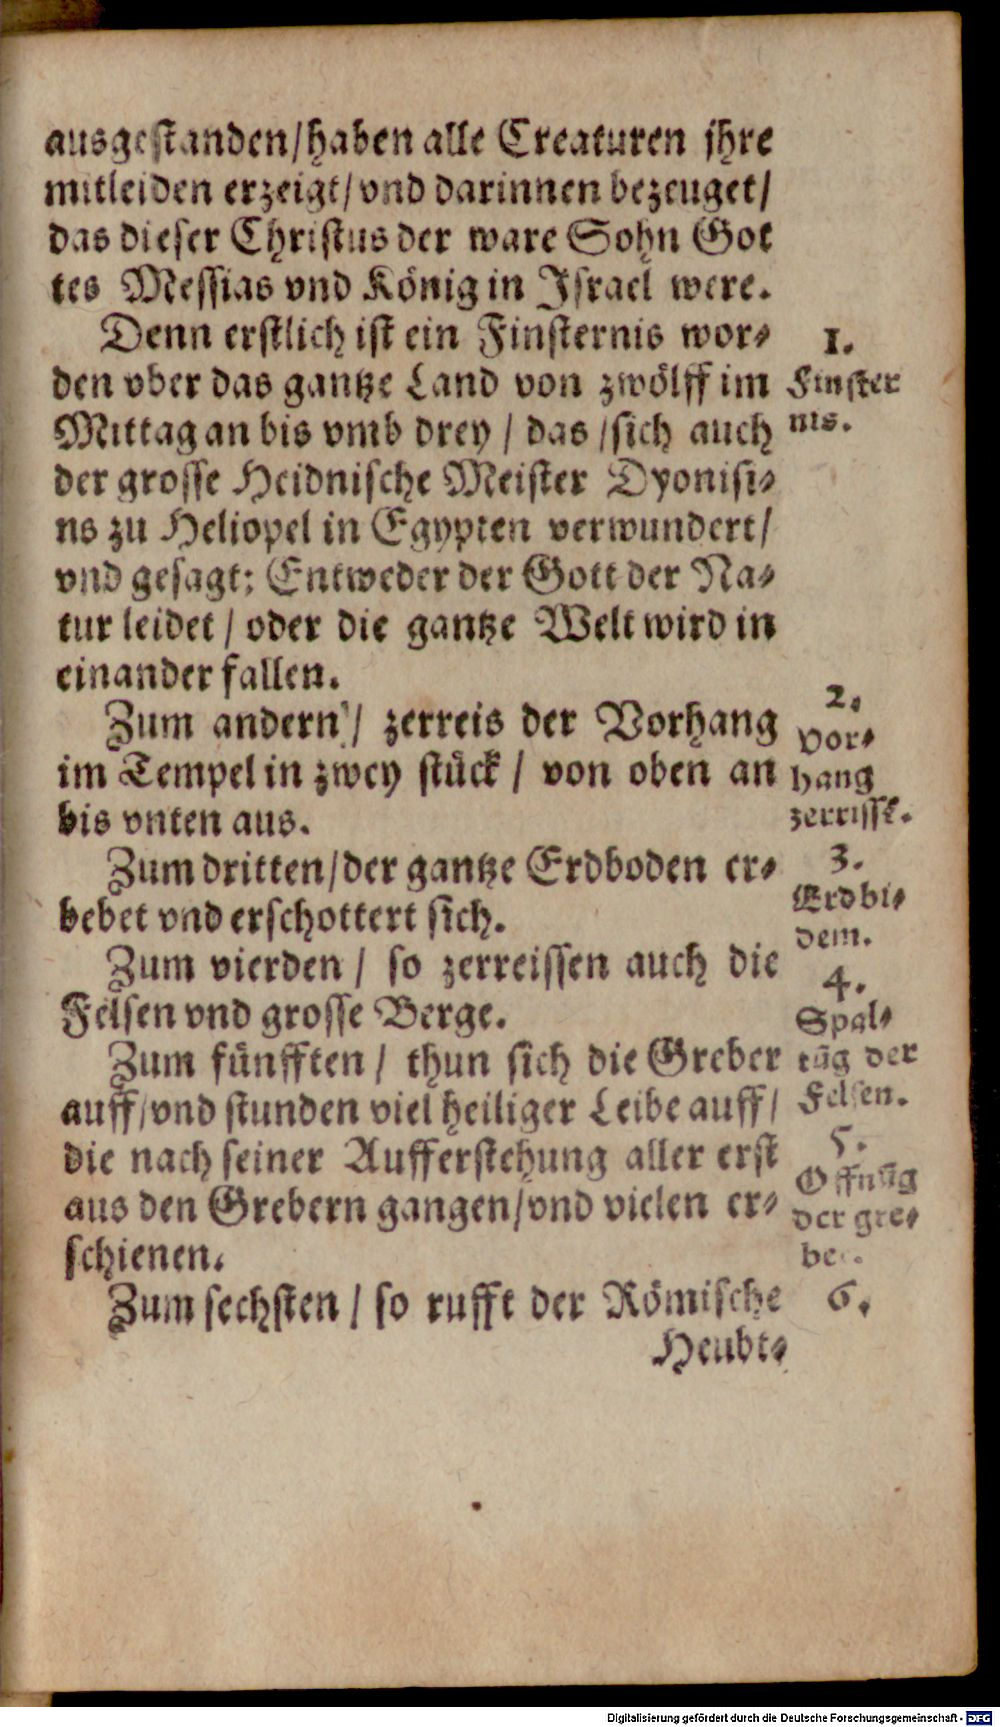 ausgestanden/haben alle Creaturen jhre
mitleiden erzeigt/vnd darinnen bezeuget/
das dieser Christus der ware Sohn Got
tes Messias vnd König in Israel were.
Denn erstlich ist ein Finsternis wor-
den vber das gantze Land von zwölff im
Mittag an bis vmb drey / das /sich auch
der grosse Heidnische Meister Dyonisi-
ns zu Heliopel in Egypten verwundert/
vnd gesagt: Entweder der Gott der Na-
tur leidet / oder die gantze Welt wird in
einander fallen.
1.
Finster
nis.
Zum andern / zerreis der Vorhang
im Tempel in zwey stück / von oben an
bis vnten aus.
2.
Vor-
hang
zerrisst.
Zum dritten/der gantze Erdboden er-
bebet vnd erschottert sich.
3.
Erdbi-
dem.
Zum vierden / so zerreissen auch die
Felsen vnd grosse Berge.
4.
Spal-
tũg der
Felsen.
Zum fünfften / thun sich die Greber
auff/vnd stunden viel heiliger Leibe auff/
die nach seiner Aufferstehung aller erst
aus den Grebern gangen/vnd vielen er-
schienen.
5.
Offnũg
der gre-
ber.
Zum sechsten / so rufft der Römische
6.
Heubt-
Digitalisierung gefördert durch die Deutsche Forschungsgemeinschaft - DFG